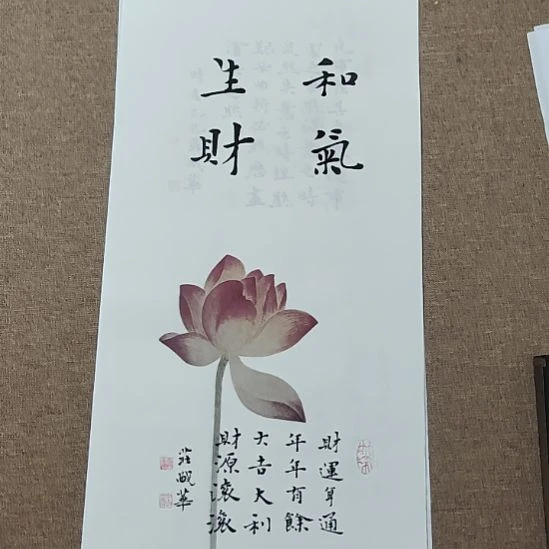 和氣
生財
財運亨通
年年有餘
大吉大利
財源滾滾
莊華